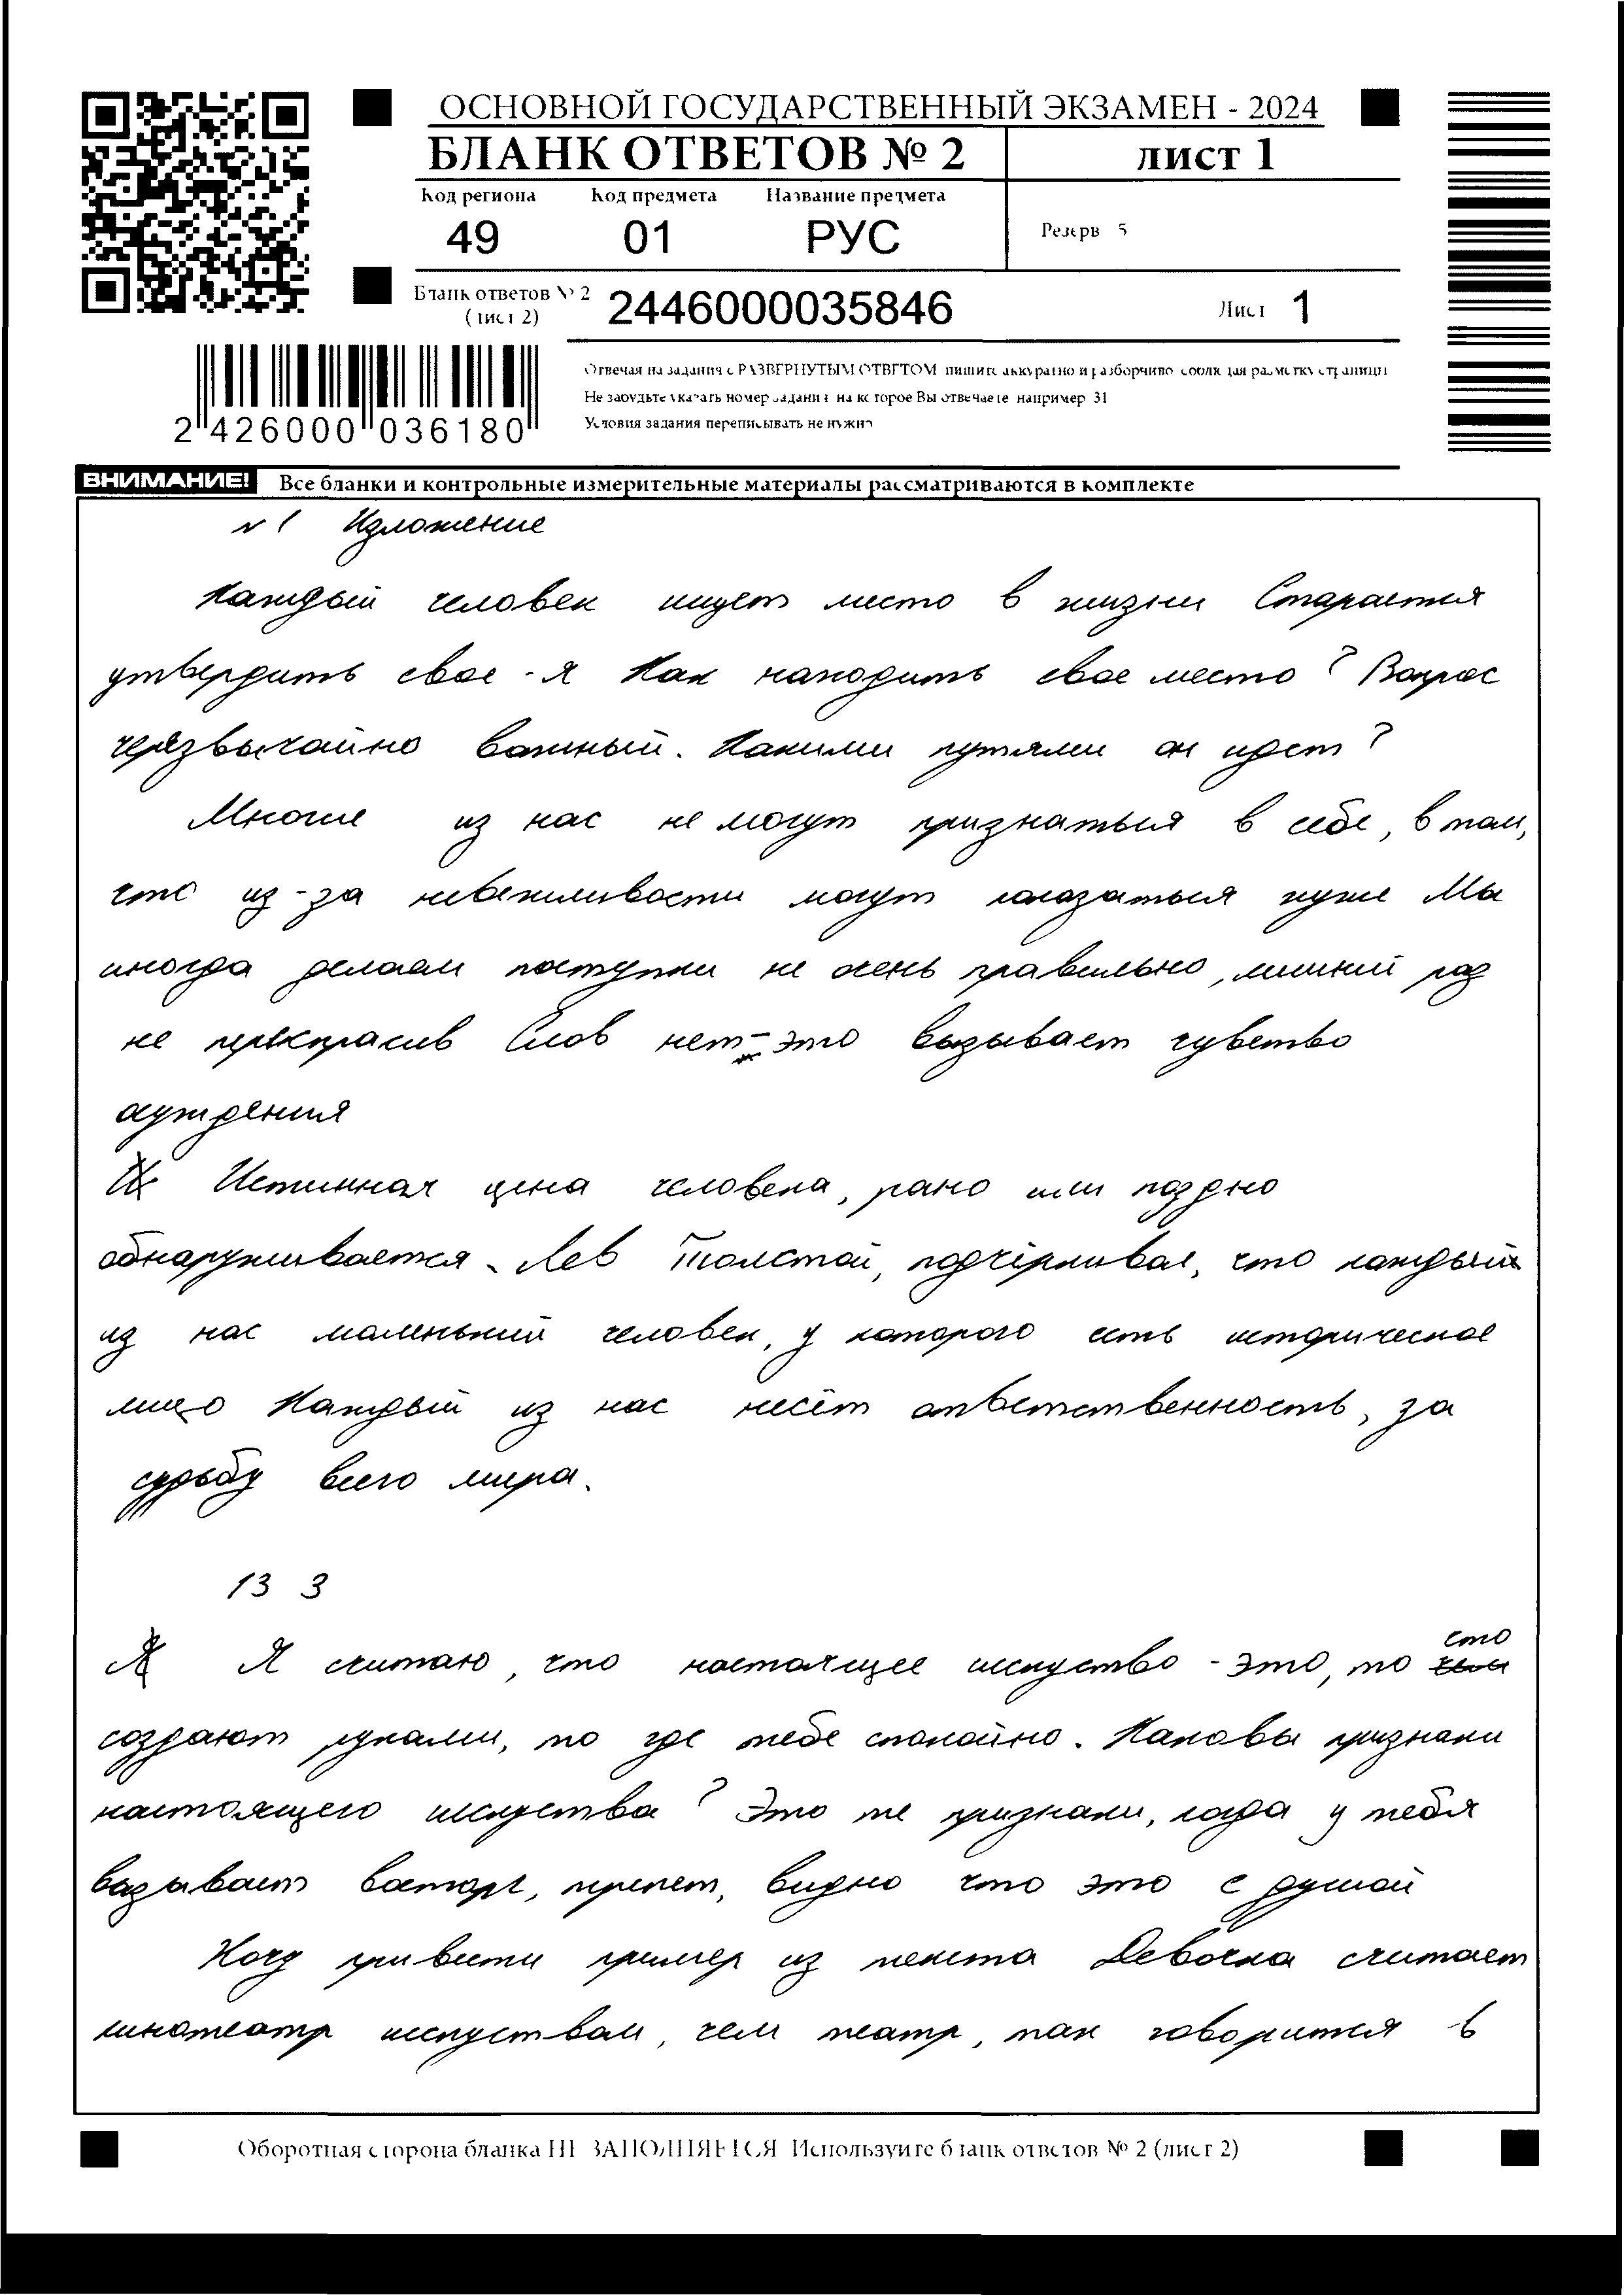 ОСНОВНОЙ ГОСУДАРСТВЕННЫЙ ЭКЗАМЕН - 2024
БЛАНК ОТВЕТОВ № 2 ЛИСТ 1
Код региона Код предмета Название предмета
49 01 РУС Резерв 5
Бланк ответов № 2 (лист 2) 2446000035846 Лист 1
Отвечая на задания с РАЗВЕРНУТЫМ ОТВЕТОМ пишите аккуратно и разборчиво соблюдая разметку страницы
Не забудьте указать номер задания на которое Вы отвечаете например 31
Условия задания переписывать не нужно
2 426000 036180
ВНИМАНИЕ! Все бланки и контрольные измерительные материалы рассматриваются в комплекте
№1 Изложение
Каждый человек ищет место в жизни Старается
утвердить свое - Я Как находить свое место? Вопрос
черязвычайно важный. Какими путями он идет?
Многие из нас не могут признаться в себе, в том,
что из-за невежливости могут показаться хуже Мы
иногда делаем поступки не очень правильно, лишний раз
не переспросив Слов нет - это вызывает чувство
Истинная цена человека, рано или поздно
обнаруживается. Лев Толстой, подчёркивал, что каждый
из нас маленький человек, у которого есть историческое
лицо Каждый из нас несёт ответственность, за
судьбу всего мира.
13 3
Я Я считаю, что настоящее искуство - это, то что
создают руками, то где тебе спокойно. Каковы признаки
настоящего искуства? Это те признаки, когда у тебя
вызывает восторг, трепет, видно что это с душой
Хочу привести пример из текста Девочка считает
кинотеатр искуством, чем театр, как говорится в
Оборотная сторона бланка НЕ ЗАПОЛНЯЕТСЯ Используйте бланк ответов № 2 (лист 2)